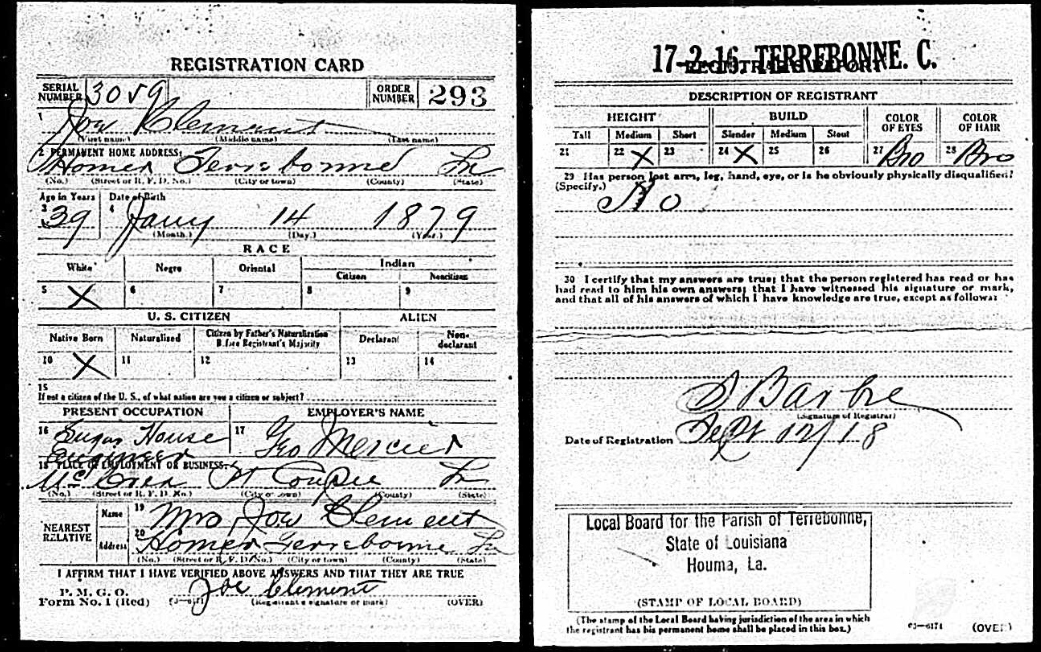 REGISTRATION CARD
SERIAL NUMBER 3059 ORDER NUMBER 293
1 Joe Clement
(First name) (Middle name) (Last name)
2 PERMANENT HOME ADDRESS:
Homer Terrebonne La
(No.) (Street or R. F. D. No.) (City or town) (County) (State)
Age in Years Date of Birth
3 39 4 Jany 14 1879
(Month.) (Day.) (Year.)
RACE
White Negro Oriental Indian
Citizen Noncitizen
5 X 6 7 8 9
U. S. CITIZEN ALIEN
Native Born Naturalized Citizen by Father's Naturalization Before Registrant's Majority Declarant Non-declarant
10 X 11 12 13 14
15
If not a citizen of the U. S., of what nation are you a citizen or subject?
PRESENT OCCUPATION EMPLOYER'S NAME
16 Sugar House Engineer 17 Geo Mercier
18 PLACE OF EMPLOYMENT OR BUSINESS:
McCrea Pt Coupee La
(No.) (Street or R. F. D. No.) (City or town) (County) (State)
NEAREST RELATIVE
Name 19 Mrs Joe Clement
Address 20 Homer Terrebonne La
(No.) (Street or R. F. D. No.) (City or town) (County) (State)
I AFFIRM THAT I HAVE VERIFIED ABOVE ANSWERS AND THAT THEY ARE TRUE
P. M. G. O.
Form No. 1 (Red) Joe Clement
(Registrant's signature or mark) (OVER)
17-2-16 TERREBONNE. C.
REGISTRAR'S REPORT
DESCRIPTION OF REGISTRANT
HEIGHT BUILD COLOR OF EYES COLOR OF HAIR
Tall Medium Short Slender Medium Stout
21 22 X 23 24 X 25 26 27 Bro 28 Bro
29 Has person lost arm, leg, hand, eye, or is he obviously physically disqualified?
(Specify.) No
30 I certify that my answers are true; that the person registered has read or has
had read to him his own answers; that I have witnessed his signature or mark,
and that all of his answers of which I have knowledge are true, except as follows:
S Barbre
(Signature of Registrar)
Date of Registration Sept 12/18
Local Board for the Parish of Terrebonne,
State of Louisiana
Houma, La.
(STAMP OF LOCAL BOARD)
(The stamp of the Local Board having jurisdiction of the area in which
the registrant has his permanent home shall be placed in this box.)
03-6171 (OVER)